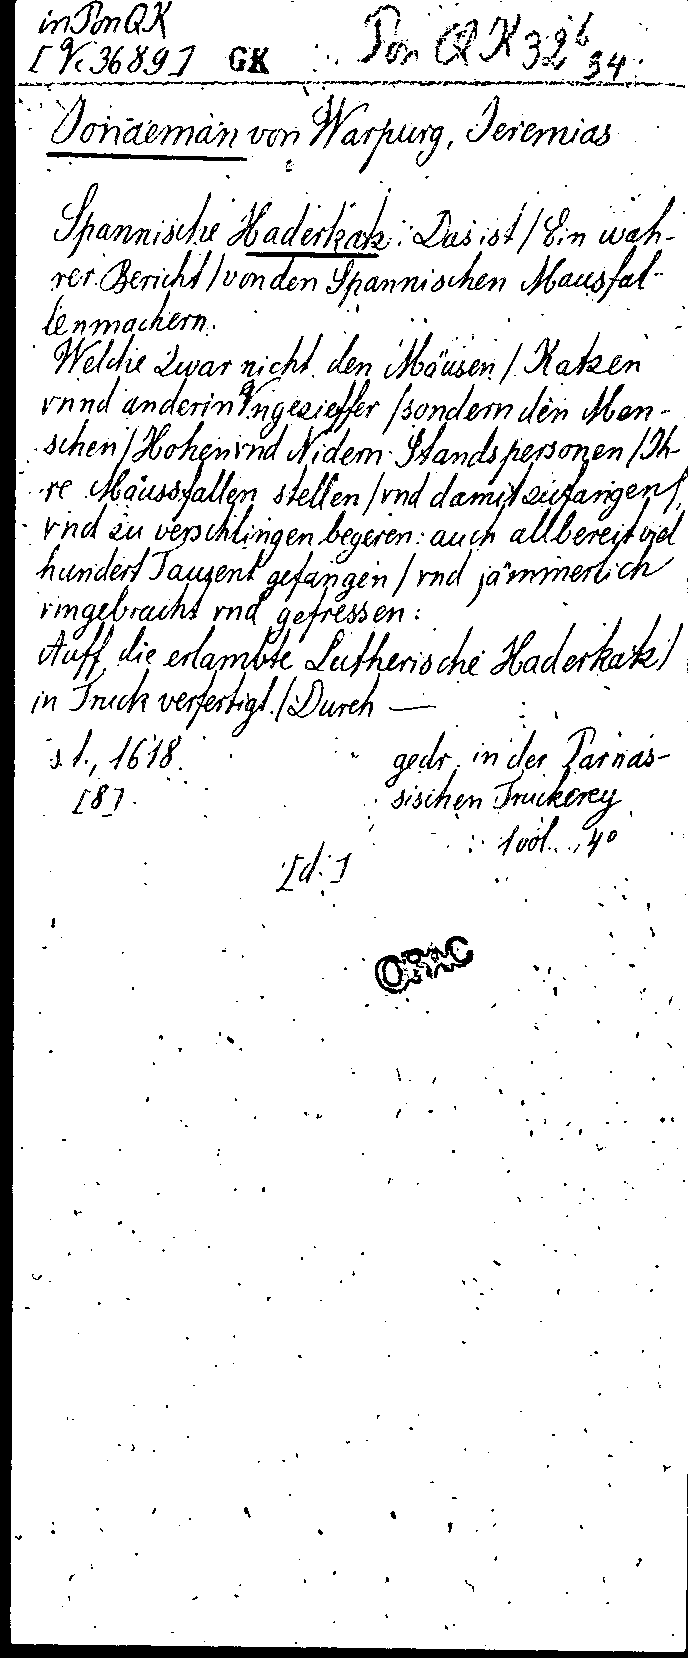 in Pon QK
[Vc 3689] GK Pon QK 32 b 34
Jonaeman von Warpurg, Jeremias
Spannische Haderkatz: Das ist / Ein wah-
rer Bericht / von den Spannischen Mausfal-
lenmachern.
Welche zwar nicht den Mäusen / Katzen
vnnd anderin Vngezieffer / sondern den Men-
schen / Hohen vnd Nidern Standspersonen / Ih-
re Mäussfallen stellen / vnd damit zufangen /
vnd zu verschlingen begeren: auch allbereit viel
hundert Tausent gefangen / vnd jämmerlich
vmgebracht vnd gefressen:
Auff die erlambte Lutherische Haderkatz /
in Truck verfertigt. / Durch —
s. l., 1618. gedr. in der Parnas-
[8] sischen Truckerey
1 vol., 4°
[d.]